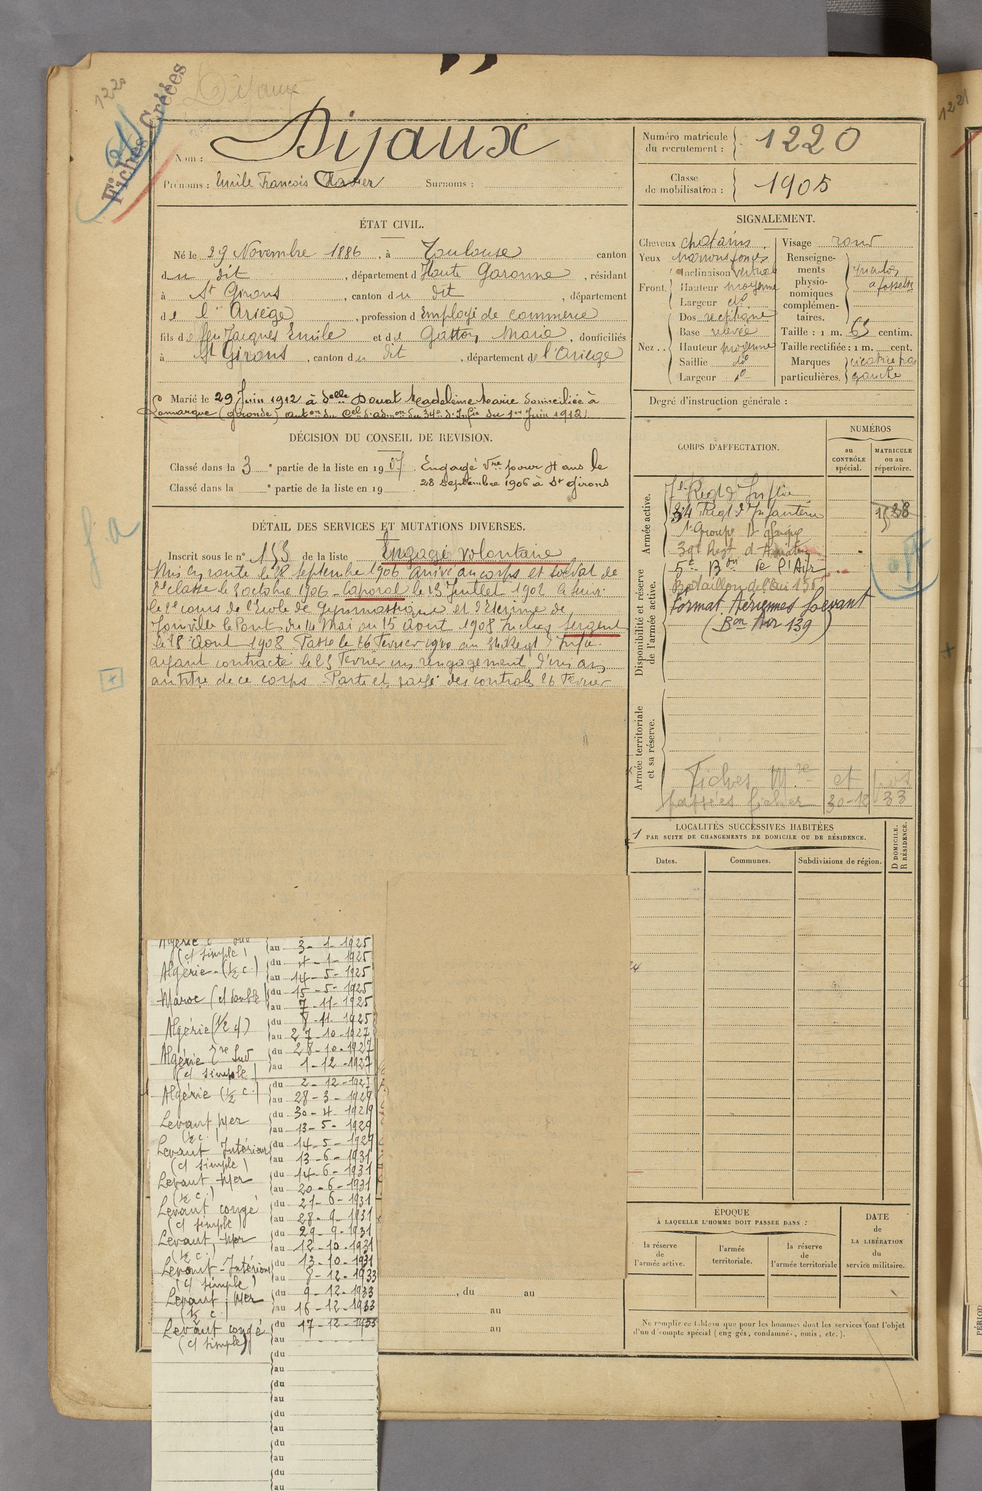 1220
Dijaux
Fiches Créées
Nom : Dijaux
Prénoms : Emile François Xavier Surnoms :
Numéro matricule du recrutement : 1220
Classe de mobilisation : 1905
ÉTAT CIVIL.
Né le 29 Novembre 1886, à Toulouse canton
du dit, département d Haute Garonne, résidant
à St Girons, canton du dit, département
de l'Ariège, profession d Employé de commerce
fils de feu Jacques Emile et de Gaston, Marie, domiciliés
à St Girons, canton du dit, département de l'Ariège
Marié le 29 Juin 1912 à Delle Douat Madeleine Marie domiciliée à
Lamarque (Gironde) auton du Cel d'admon du 34e d'Infie du 1er Juin 1912)
SIGNALEMENT.
Cheveux chatains.
Yeux marrons foncés
Front. Inclinaison verticale
Hauteur moyenne
Largeur do
Nez. Dos rectiligne
Base relevée
Hauteur moyenne
Saillie do
Largeur do
Visage rond
Renseignements physionomiques complémentaires. menton à fossette
Taille : 1 m. centim.
Taille rectifiée : 1 m. cent.
Marques particulières. cicatrice gauche
Degré d'instruction générale :
DÉCISION DU CONSEIL DE REVISION.
Classé dans la 3 e partie de la liste en 1907. Engagé Vre pour 4 ans le
Classé dans la e partie de la liste en 19 28 Septembre 1906 à St Girons
DÉTAIL DES SERVICES ET MUTATIONS DIVERSES.
Inscrit sous le n° 153 de la liste Engagé volontaire
Mis en route le 28 septembre 1906 arrivé au corps et soldat de
2e classe le 3 octobre 1906. Caporal le 13 Juillet 1907. A suivi
le 2e cours de l'Ecole de Gymnastique et d'Escrime de
Joinville le Pont du 14 Mai au 15 Aout 1908. Sergent
le 28 Aout 1908. Passé le 26 Fevrier 1910 au 34 Regt d'Infie
ayant contracté le 25 Fevrier un rengagement d'un an
au titre de ce corps. Parti et rayé des controles 26 Fevrier
CORPS D'AFFECTATION.
NUMÉROS
au CONTRÔLE spécial.
MATRICULE ou au répertoire.
Armée active.
Disponibilité et réserve de l'armée active.
Armée territoriale et sa réserve.
Regt d'Inftie
34 Regt d'Infanterie
1er Groupe
Regt d'Aviation
5e Bon de l'Air
Bataillon de l'air
Format. Aériennes Levant
(Bon Air 139)
Fiches Mre et
passées fichier 30-12 33
LOCALITÉS SUCCESSIVES HABITÉES
PAR SUITE DE CHANGEMENTS DE DOMICILE OU DE RÉSIDENCE.
Dates. Communes. Subdivisions de région. D DOMICILE. R RÉSIDENCE.
au 3-1-1925
(cl simple)
Algérie-(½ c.) du 4-1-1925
au 14-5-1925
Maroc (cl double) du 15-5-1925
au 7-11-1925
Algérie (½ c) du 8-11-1925
au 27-10-1927
Algérie Sud du 28-10-1927
(cl simple) au 1-12-1927
Algérie (½ c.) du 2-12-1927
au 28-3-1929
Levant Mer du 30-4-1929
(½ c.) au 13-5-1929
Levant Intérieur du 14-5-1929
(cl simple) au 13-6-1931
Levant Mer du 14-6-1931
(½ c.) au 20-6-1931
Levant congé du 21-6-1931
(cl simple) au 28-9-1931
Levant, Mer du 29-9-1931
(½ c.) au 12-10-1931
Levant-Intérieur du 13-10-1931
(cl simple) au 8-12-1933
Levant, Mer du 9-12-1933
(½ c.) au 16-12-1933
Levant congé du 17-12-1933
(cl simple) au
du
au
du
au
du
au
du
au
du
au
, du au
au
au
ÉPOQUE
À LAQUELLE L'HOMME DOIT PASSER DANS :
la réserve de l'armée active.
l'armée territoriale.
la réserve de l'armée territoriale
DATE DE LA LIBÉRATION du service militaire.
Ne remplir ce tableau que pour les hommes dont les services font l'objet
d'un décompte spécial (engagés, condamnés, omis, etc.).